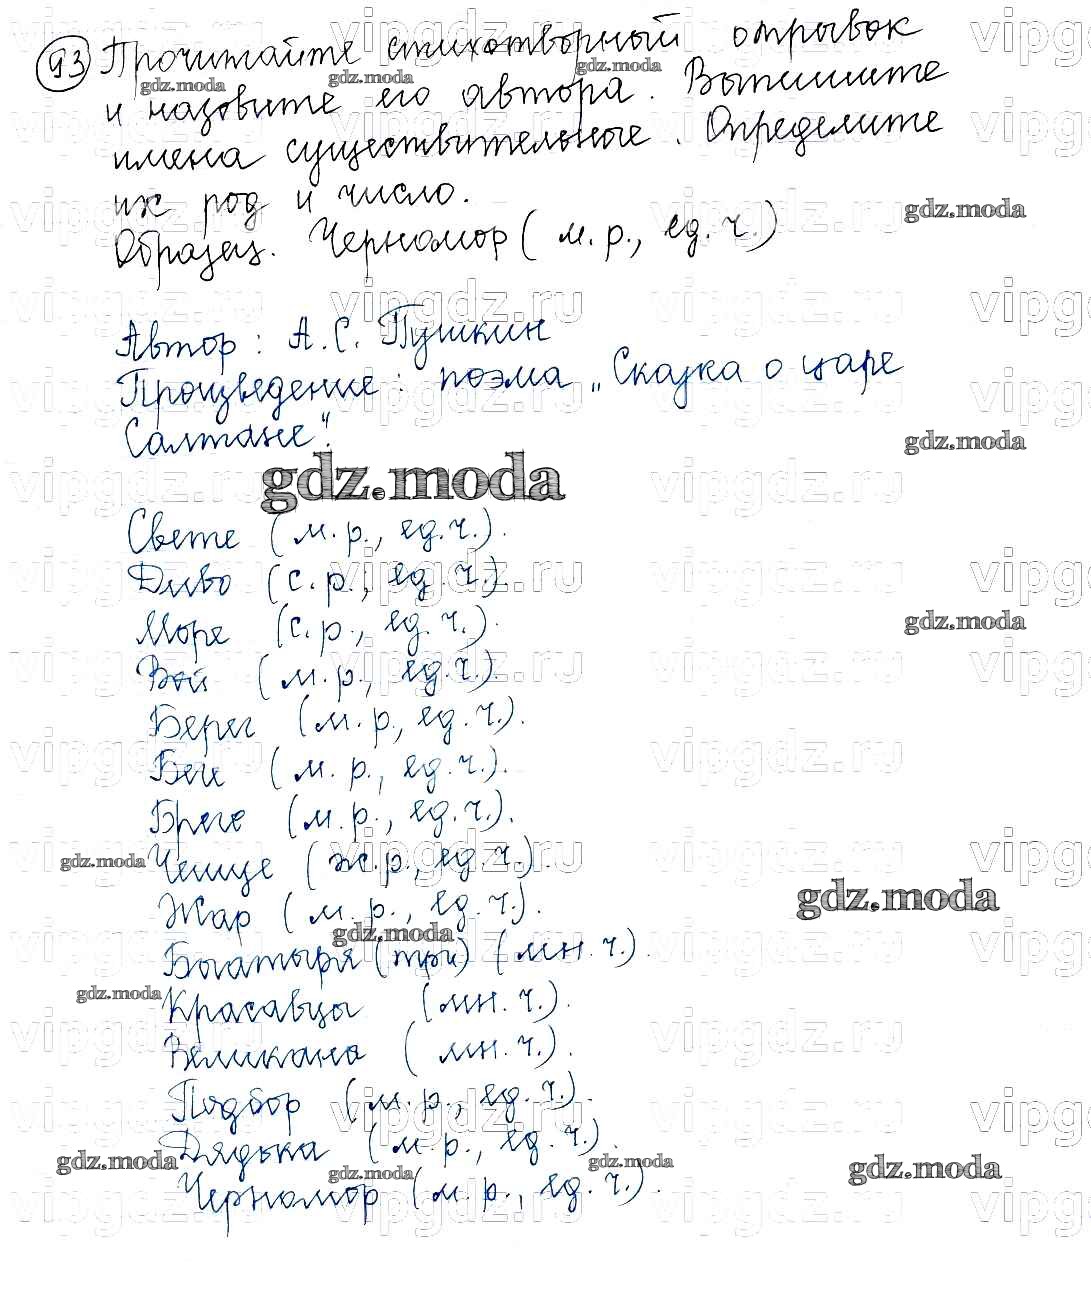 93 Прочитайте стихотворный отрывок
и назовите его автора. Выпишите
имена существительные. Определите
их род и число.
Образец. Черномор (м.р., ед.ч.)
Автор: А.С. Пушкин
Произведение: поэма „Сказка о царе
Салтане".
Свете (м.р., ед.ч.).
Диво (с.р., ед.ч.)
Море (с.р., ед.ч.).
Вой (м.р., ед.ч.).
Берег (м.р., ед.ч.).
Беге (м.р., ед.ч.).
Бреге (м.р., ед.ч.).
Чешуе (ж.р., ед.ч.).
Жар (м.р., ед.ч.).
Богатыря (три) (мн.ч.).
Красавцы (мн.ч.).
Великана (мн.ч.).
Подбор (м.р., ед.ч.).
Дядька (м.р., ед.ч.).
Черномор (м.р., ед.ч.).
gdz.moda
vipgdz.ru